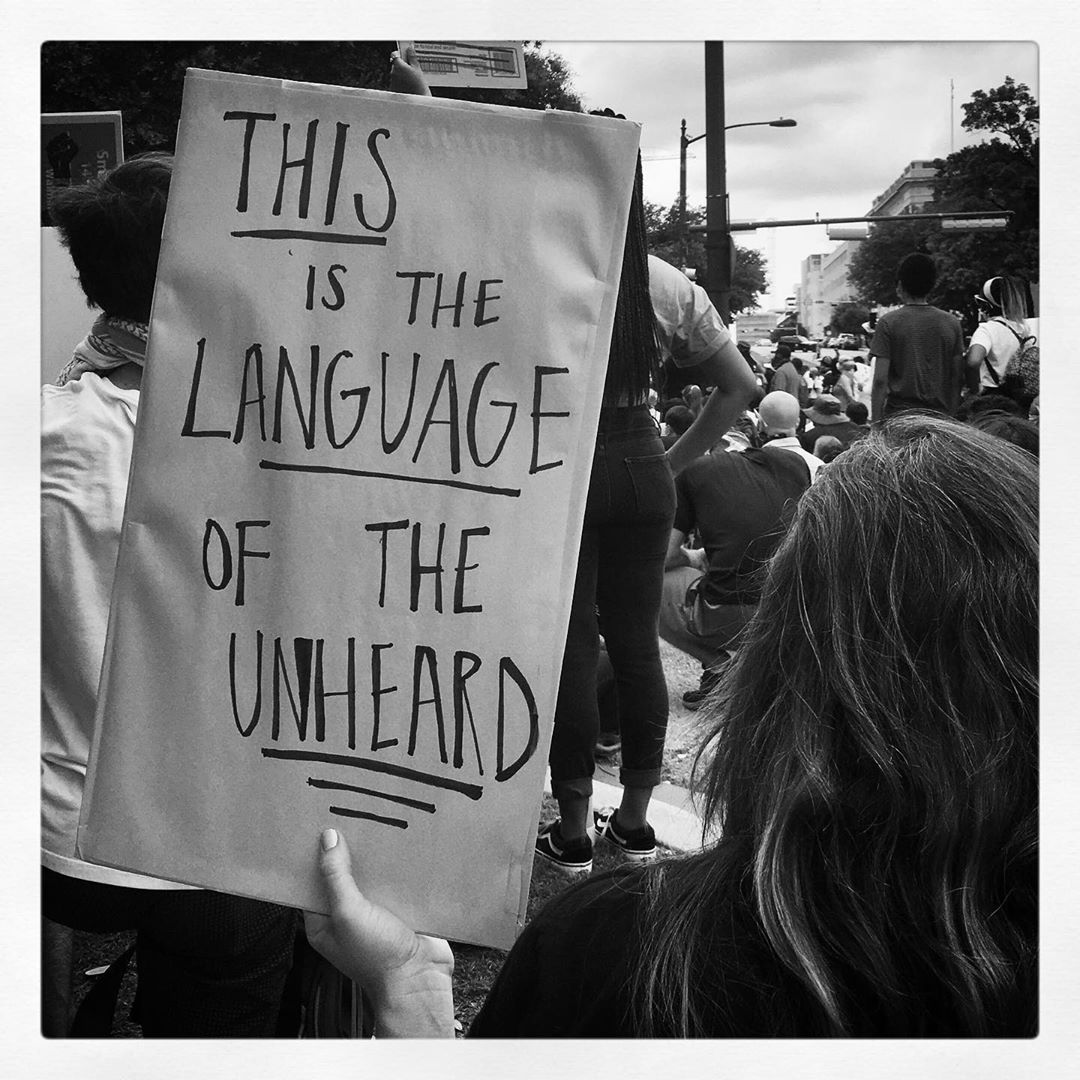 THIS
IS THE
LANGUAGE
OF THE
UNHEARD